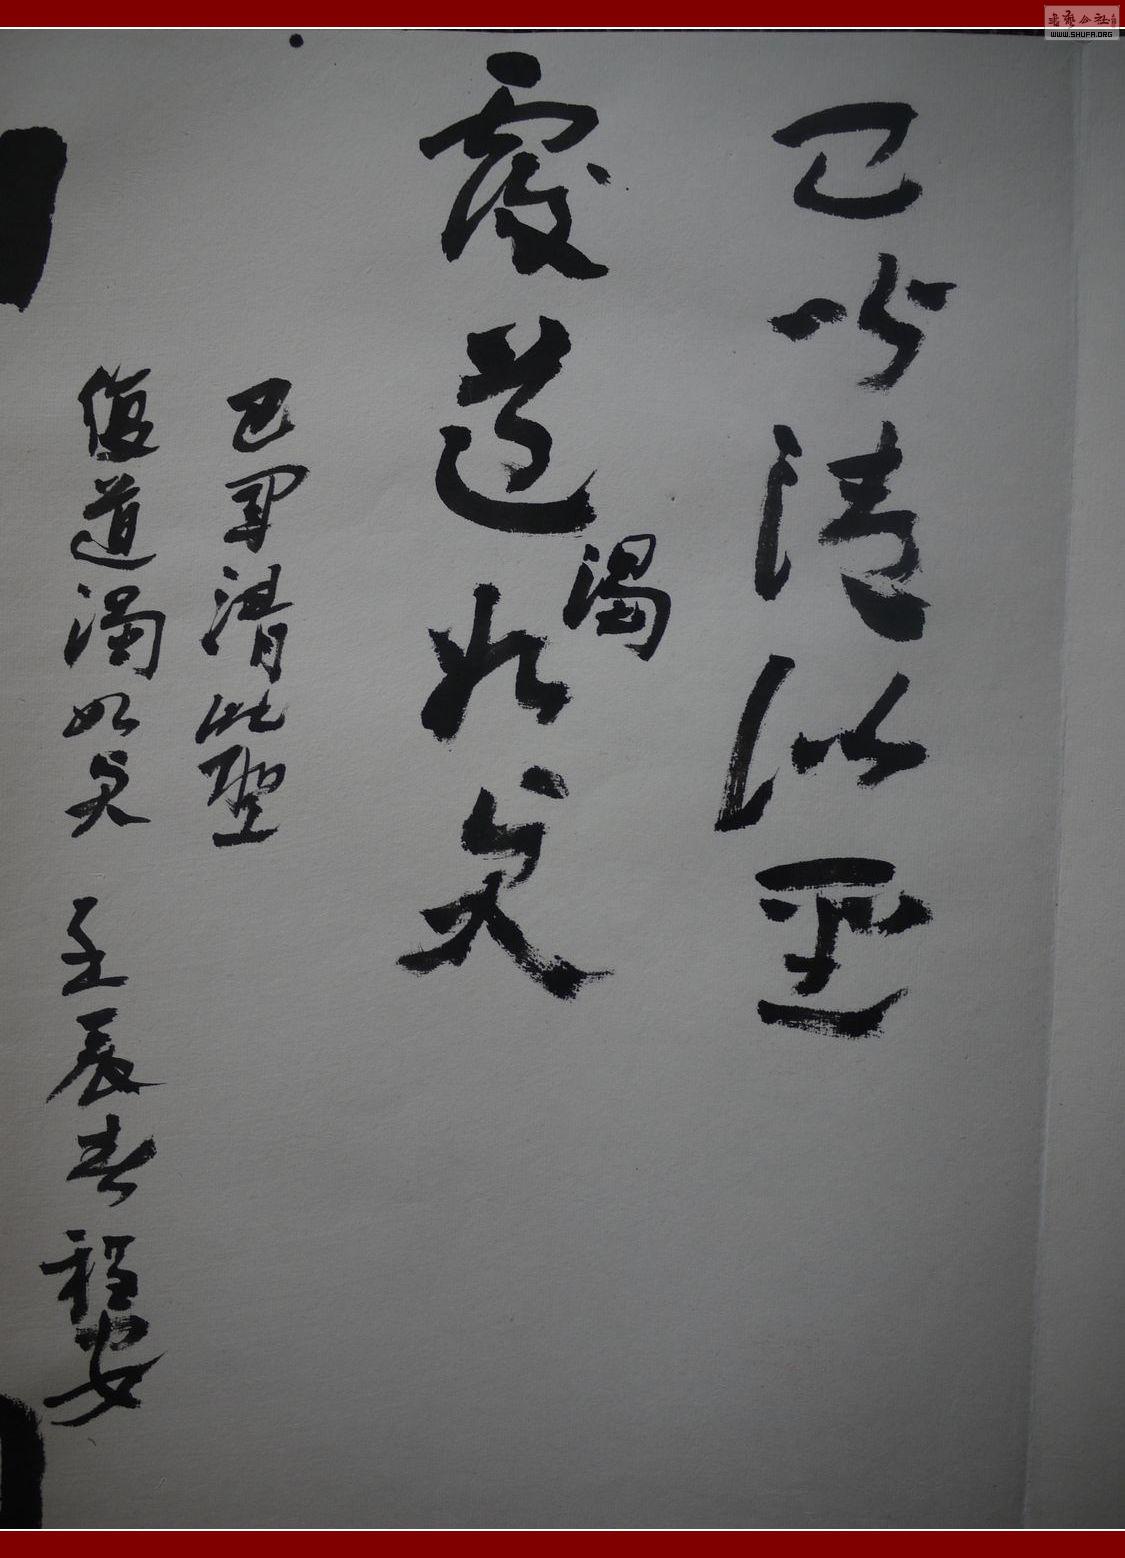 已聞清比聖
復道濁如賢
已聞清比聖
復道濁如賢 壬辰春 程安
書藝公社
WWW.SHUFA.ORG